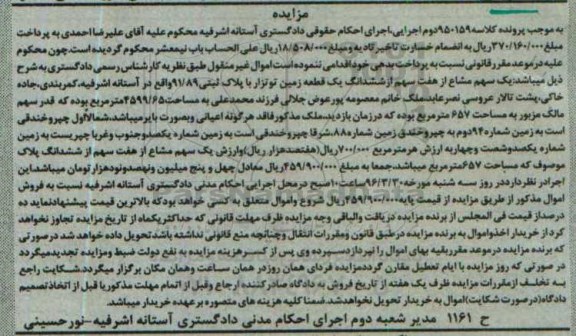 مزایده
به موجب پرونده کلاسه ۹۵۰۱۵۹دوم اجرایی،اجرای احکام حقوقی دادگستری آستانه اشرفیه محکوم علیه آقای علیرضا احمدی به پرداخت
مبلغ۳۷۰/۱۶۰/۰۰۰ریال به انضمام خسارت تاخیر تادیه و مبلغ۱۸/۵۰۸/۰۰۰ریال علی الحساب باب نیمعشر محکوم گردیده است.چون محکوم
علیه درموعد مقرر قانونی نسبت به پرداخت بدهی خود اقدامی ننموده است اموال غیر منقول طبق نظریه کارشناس رسمی دادگستری به شرح
ذیل میباشد:یک سهم مشاع از هفت سهم از ششدانگ یک قطعه زمین توتزار با پلاک ثبتی۹۱/۸۹واقع در آستانه اشرفیه،کمربندی،جاده
خاکی،پشت تالار عروسی نصر عابد.ملک خانم معصومه پورعوض جلالی فرزند محمدعلی به مساحت۴۵۹۹/۶۵مترمربع بوده که قدر سهم
مالک مزبور به مساحت ۶۵۷ مترمربع بوده که درزمان بازدید.ملک مذکور فاقد هرگونه اعیانی وبصورت بایرمیباشد.شمالاًاول چپروخندقی
است به زمین شماره۹۴دوم به چپروخندق زمین شماره۸۸،شرقا چپروخندقی است به زمین شماره یکصدو جنوب وغربا چپریست به زمین
شماره یکصدوشصت وچهاربه ارزش هرمترمربع ۷۰۰/۰۰۰ریال(هفتصدهزار ریال)وارزش یک سهم مشاع از هفت سهم از ششدانگ پلاک
موصوف که مساحت ۶۵۷مترمربع میباشد.جمعا به مبلغ ۴۵۹/۹۰۰/۰۰۰ریال معادل چهل و پنج میلیون ونهصدونودهزار تومان میباشد.این
اجرا در نظر دارد در روز سه شنبه مورخه۹۶/۳/۳۰ساعت۱۰صبح درمحل اجرای احکام مدنی دادگستری آستانه اشرفیه نسبت به فروش
اموال مذکور از طریق مزایده از قیمت پایه۴۵۹/۹۰۰/۰۰۰ریال شروع واموال متعلق به کسی خواهد بودکه بالاترین قیمت پیشنهادنماید ده
درصداز قیمت فی المجلس از برنده مزایده دریافت والباقی وجه مزایده ظرف مهلت قانونی که حداکثریکماه از تاریخ مزایده تجاوز نخواهد
کرد از خریدار اخذواموال به برنده مزایده درطبق قانون ومقررات انتقال وچنانچه منع قانونی نداشته باشدتحویل داده خواهد شد.درصورتی
که برنده مزایده درموعد مقرربقیه بهای اموال را نپردازدسپرده وی پس از کسرهزینه مزایده به نفع دولت ضبط ومزایده تجدیدمیگردد
در صورتی که روز مزایده با ایام تعطیل مقارن گرددمزایده فردای همان روزدر همان ساعت وهمان مکان برگزار میگردد.شکایت راجع
به تخلف ازمقررات مزایده ظرف یک هفته از تاریخ فروش به دادگاه صادرکننده ارجاع وقبل از اتمام مهلت مذکوریا قبل از اتخاذتصمیم
دادگاه(درصورت شکایت)اموال به خریدار تحویل نخواهدشد.ضمنا کلیه هزینه های متصوره برعهده خریدار میباشد.
ح ۱۱۶۱ مدیر شعبه دوم اجرای احکام مدنی دادگستری آستانه اشرفیه-نورحسینی